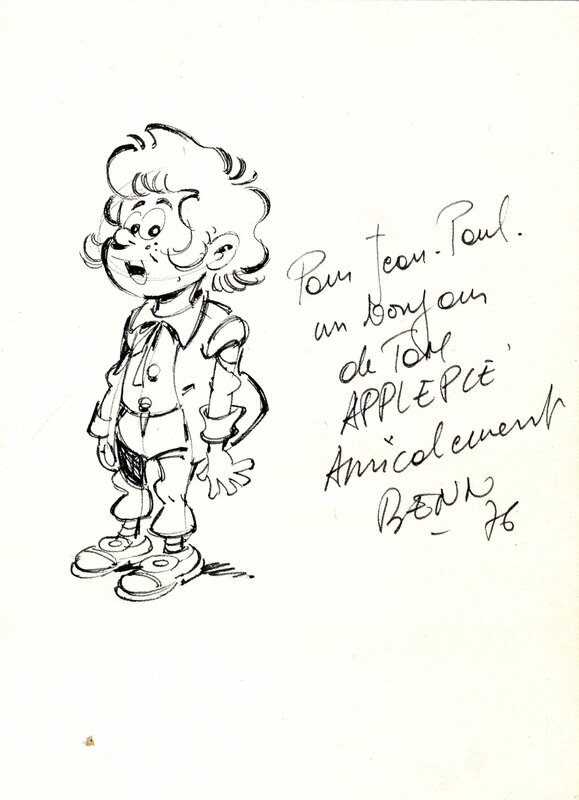 Pour Jean-Paul.
un bonjour
de Tom
APPLEPIE
Amicalement
BENN
76